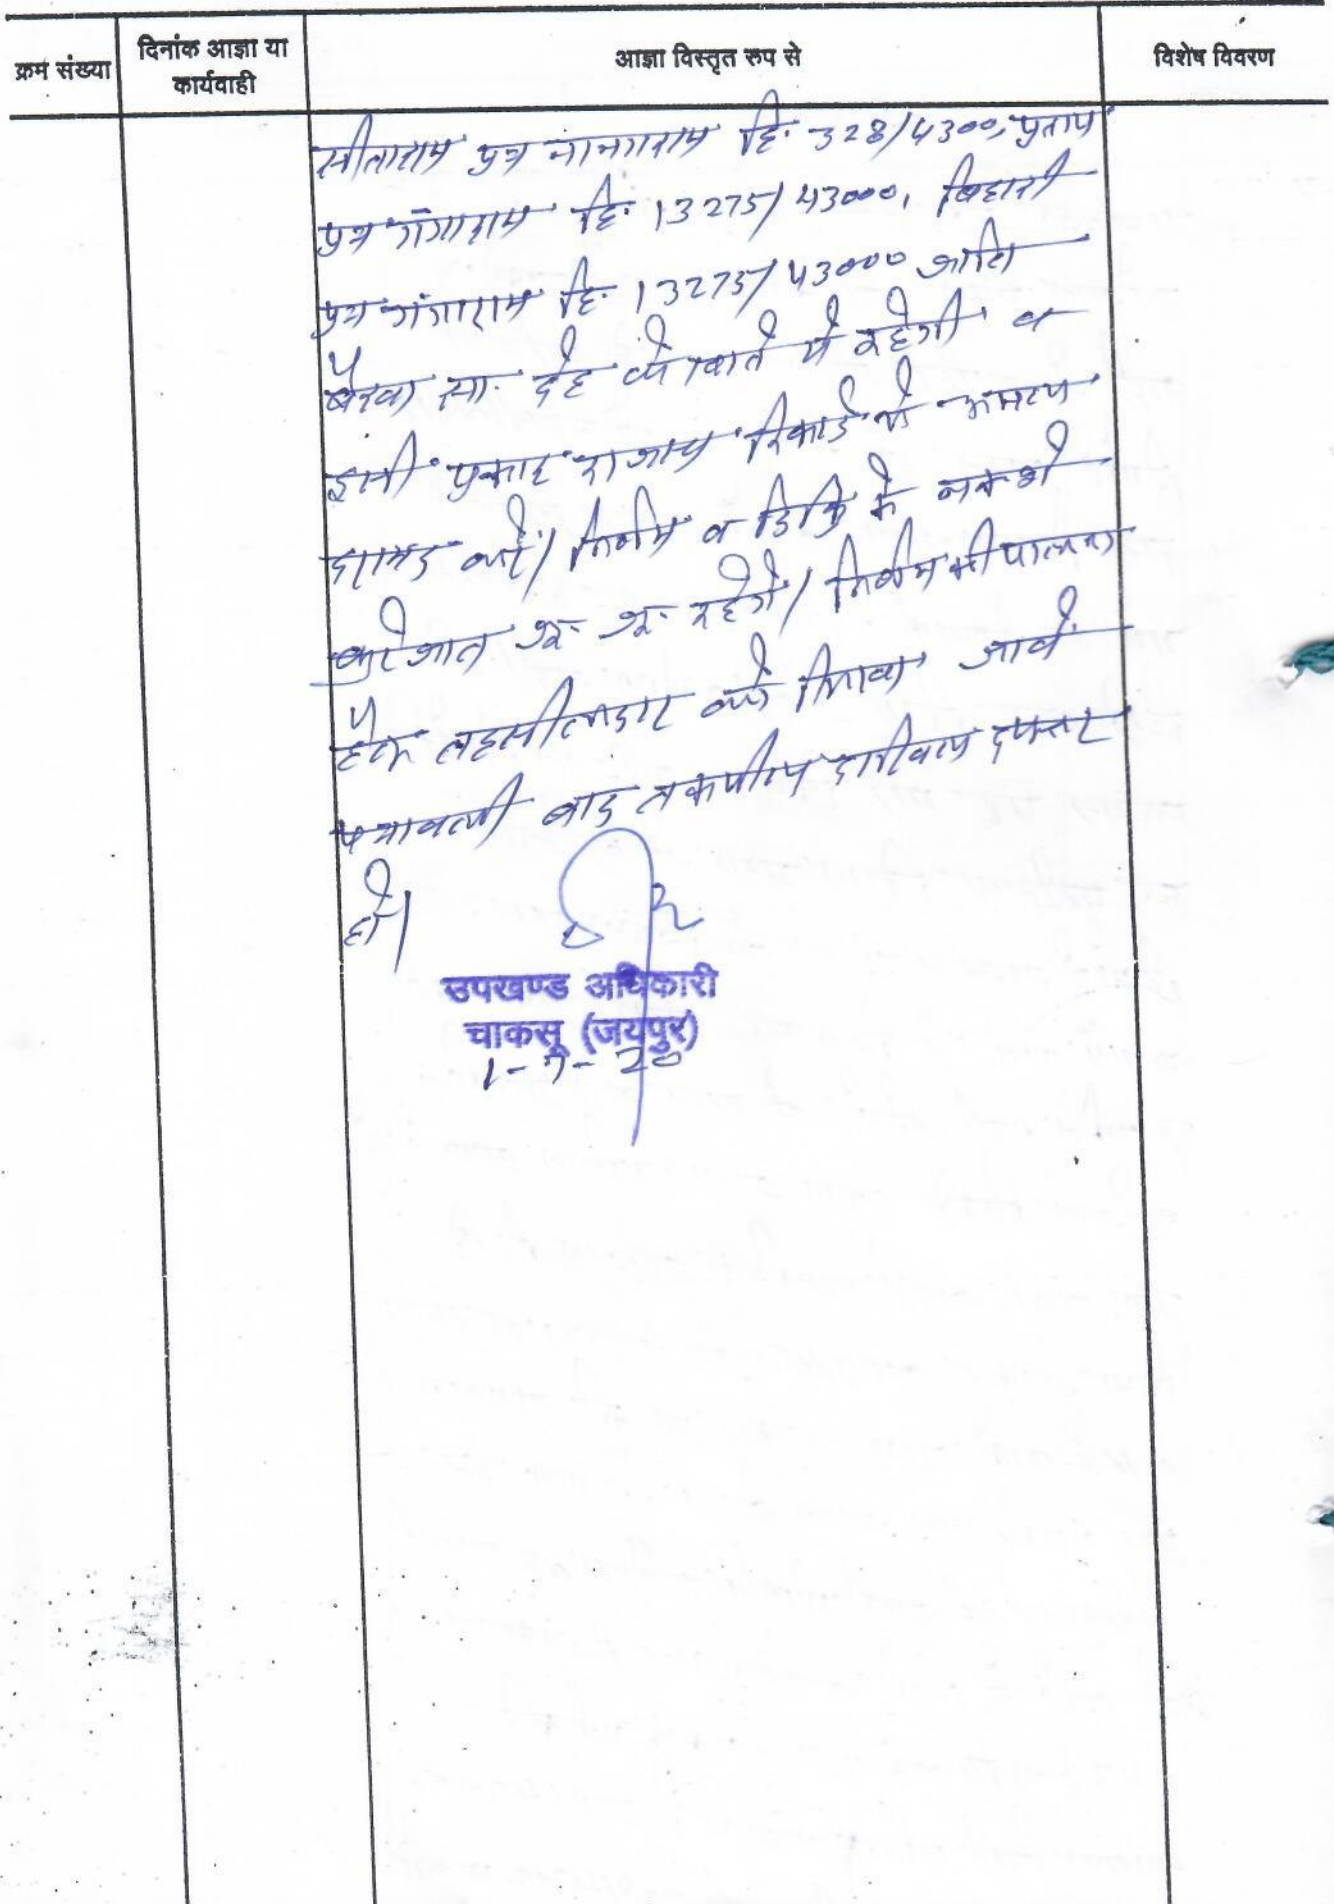 क्रम संख्या
दिनांक आज्ञा या
कार्यवाही
आज्ञा विस्तृत रूप से
विशेष विवरण
सीताराम पुत्र नानगराम हि. 328/4300, प्रताप
पुत्र गंगाराम हि. 13275/43000, बिहारी
पुत्र गंगाराम हि. 13275/43000 जाति
बैरवा सा. देह के खाते में रहेगी व
इसी प्रकार राजस्व रिकार्ड में अमल
दरामद करें। निर्णय व डिक्री के नक्शे
कुरेजात रहेगें। निर्णय की पालना
हेतु तहसीलदार को लिखा जावें
पत्रावली बाद तकमील दाखिल दफ्तर
हो।
उपखण्ड अधिकारी
चाकसू (जयपुर)
1-7-20